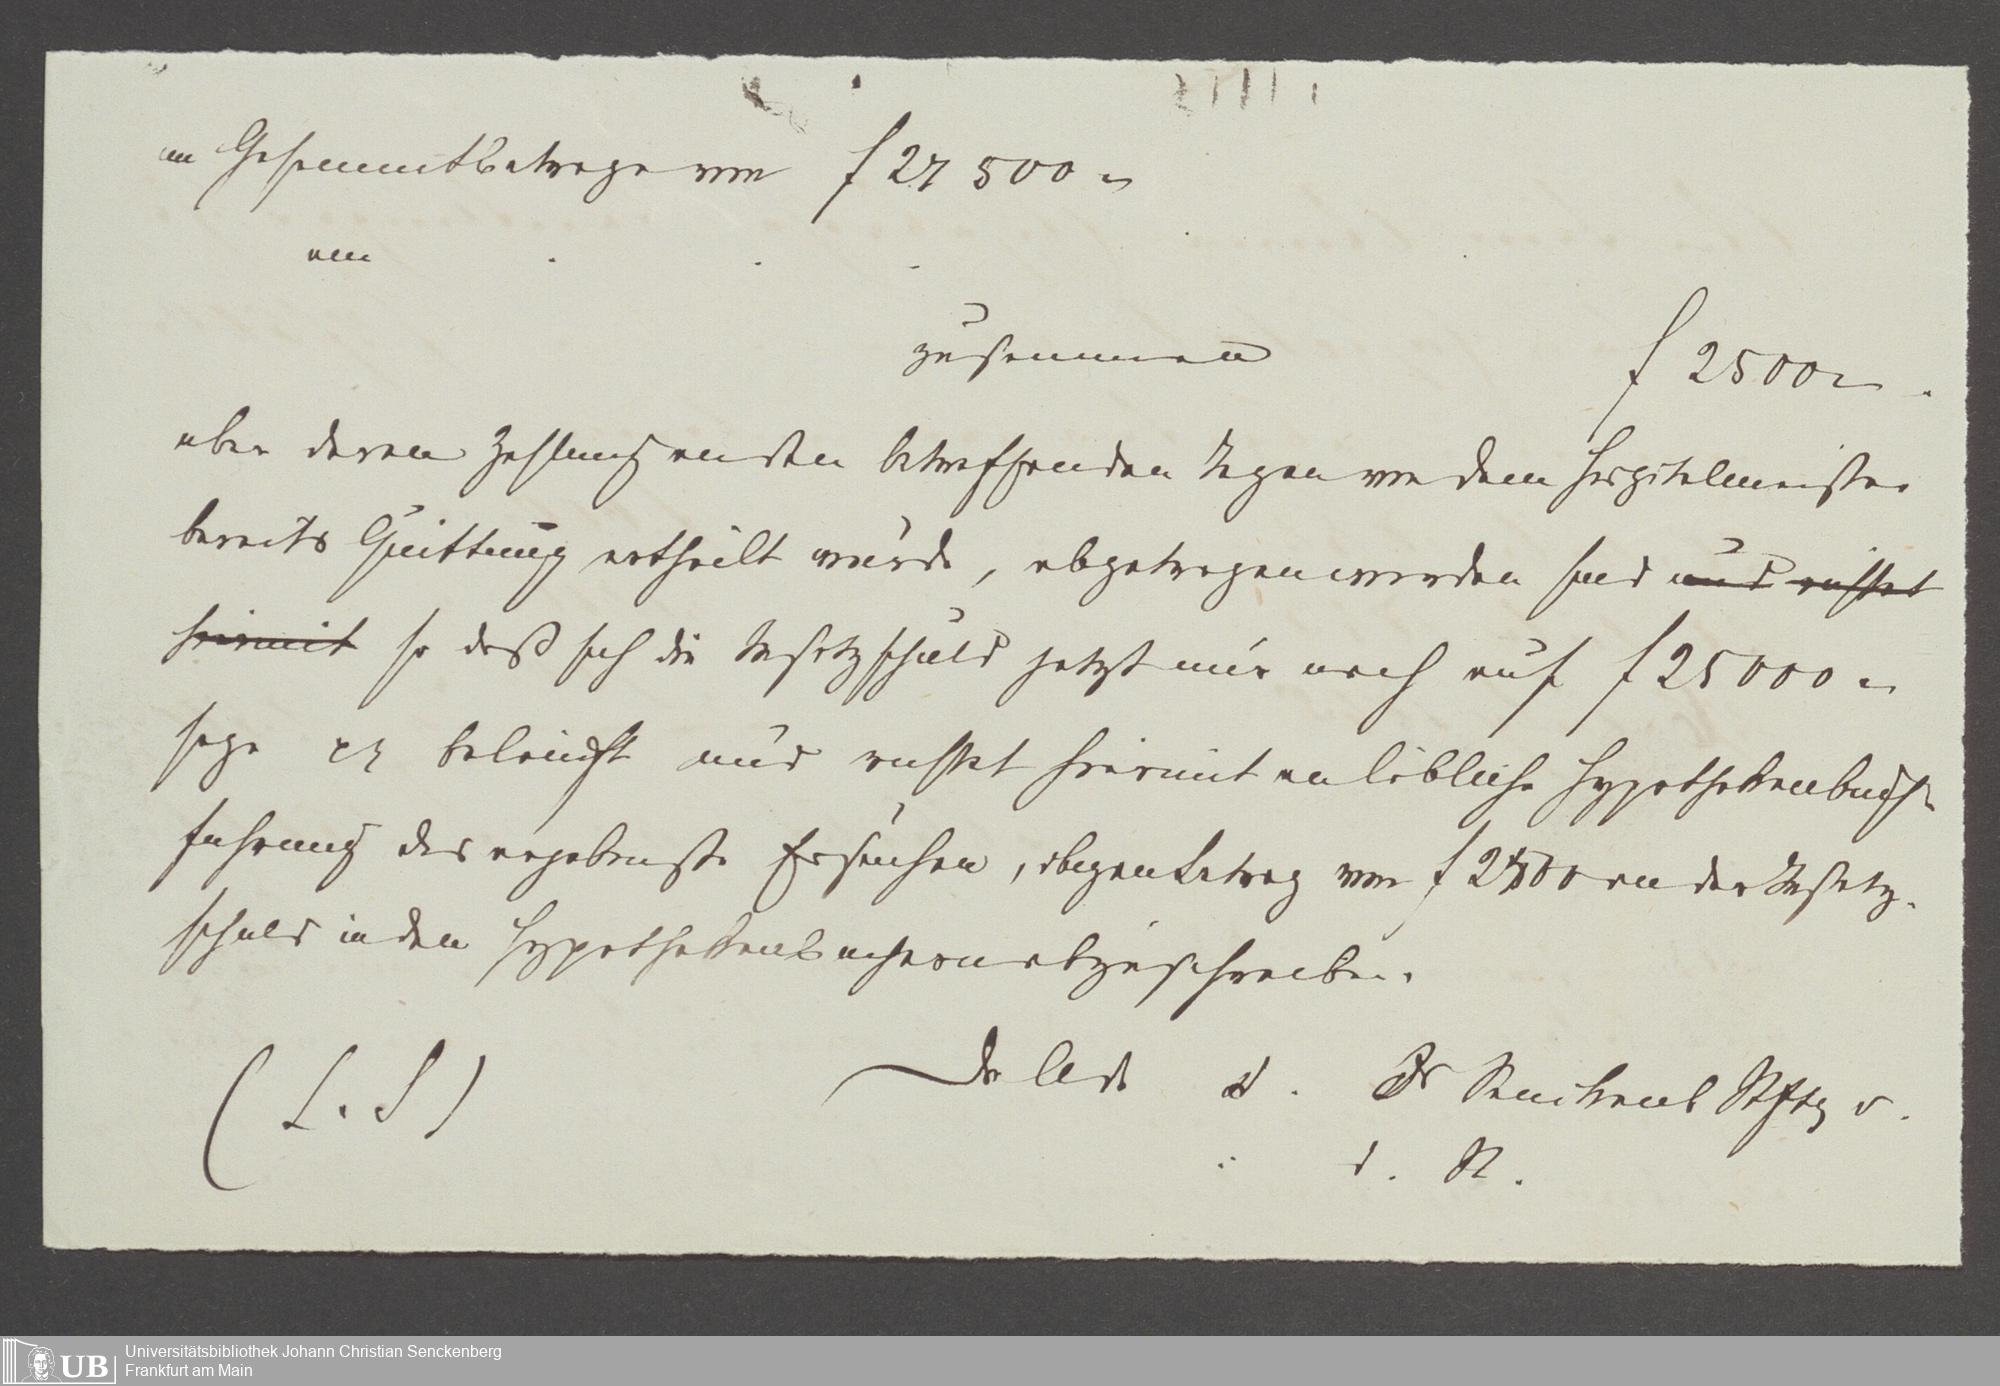 im Gesammtbetrage von f 27500 –
am
zusammen f 2500 –.
über deren Zahlung an den betreffenden Tagen von dem Hospitalmeister
bereits Quittung ertheilt wurde, abgetragen worden sind und richtet
hiermit so daß sich die Insatzschuld jetzt nur noch auf f 25000 –
sage beläuft und richtet hiermit an löbliche Hypothekenbuch-
führung das ergebenste Ersuchen, obigen Betrag von f 2500 an der Insatz-
schuld in den Hypothekenbüchern abzuschreiben.
(L. S) Die Ad d. Dr Senckenb Stftg
d. St.
UB
Universitätsbibliothek Johann Christian Senckenberg
Frankfurt am Main